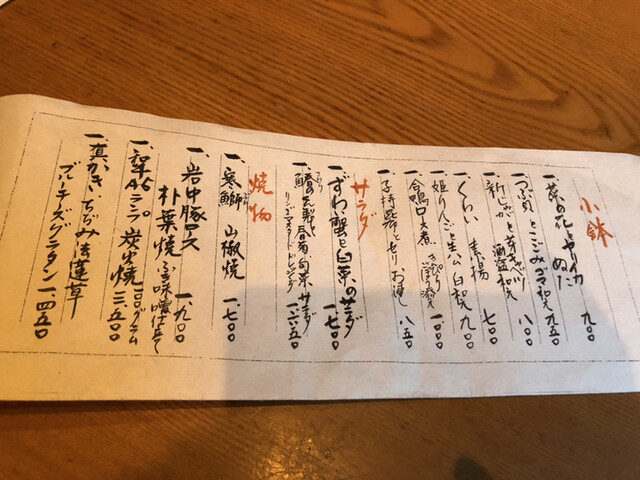 小鉢
一、菜の花とヤリイカ ぬた 九〇〇
一、つぶ貝とこごみ ゴマ和え 九五〇
一、新じゃがと芽キャベツ 酒盗和え 八〇〇
一、くわい 素揚 七〇〇
一、姫りんごと生ハム 白和え 九〇〇
一、合鴨ロース煮 一、〇〇〇
一、子持昆布とせり お浸し 八五〇
サラダ
一、ずわい蟹と白菜のサラダ 一、七〇〇
春菊 サラダ
リンゴマスタードドレッシング 一、六五〇
焼物
一、寒鰤 山椒焼 一、七〇〇
一、岩中豚ロース
朴葉焼 ふき味噌仕立て 一、九〇〇
一、和牛A5ランプ 炭火焼 一〇〇グラム 三、五〇〇
一、真かき・ちぢみ法蓮草
ブルーチーズグラタン 一、四五〇